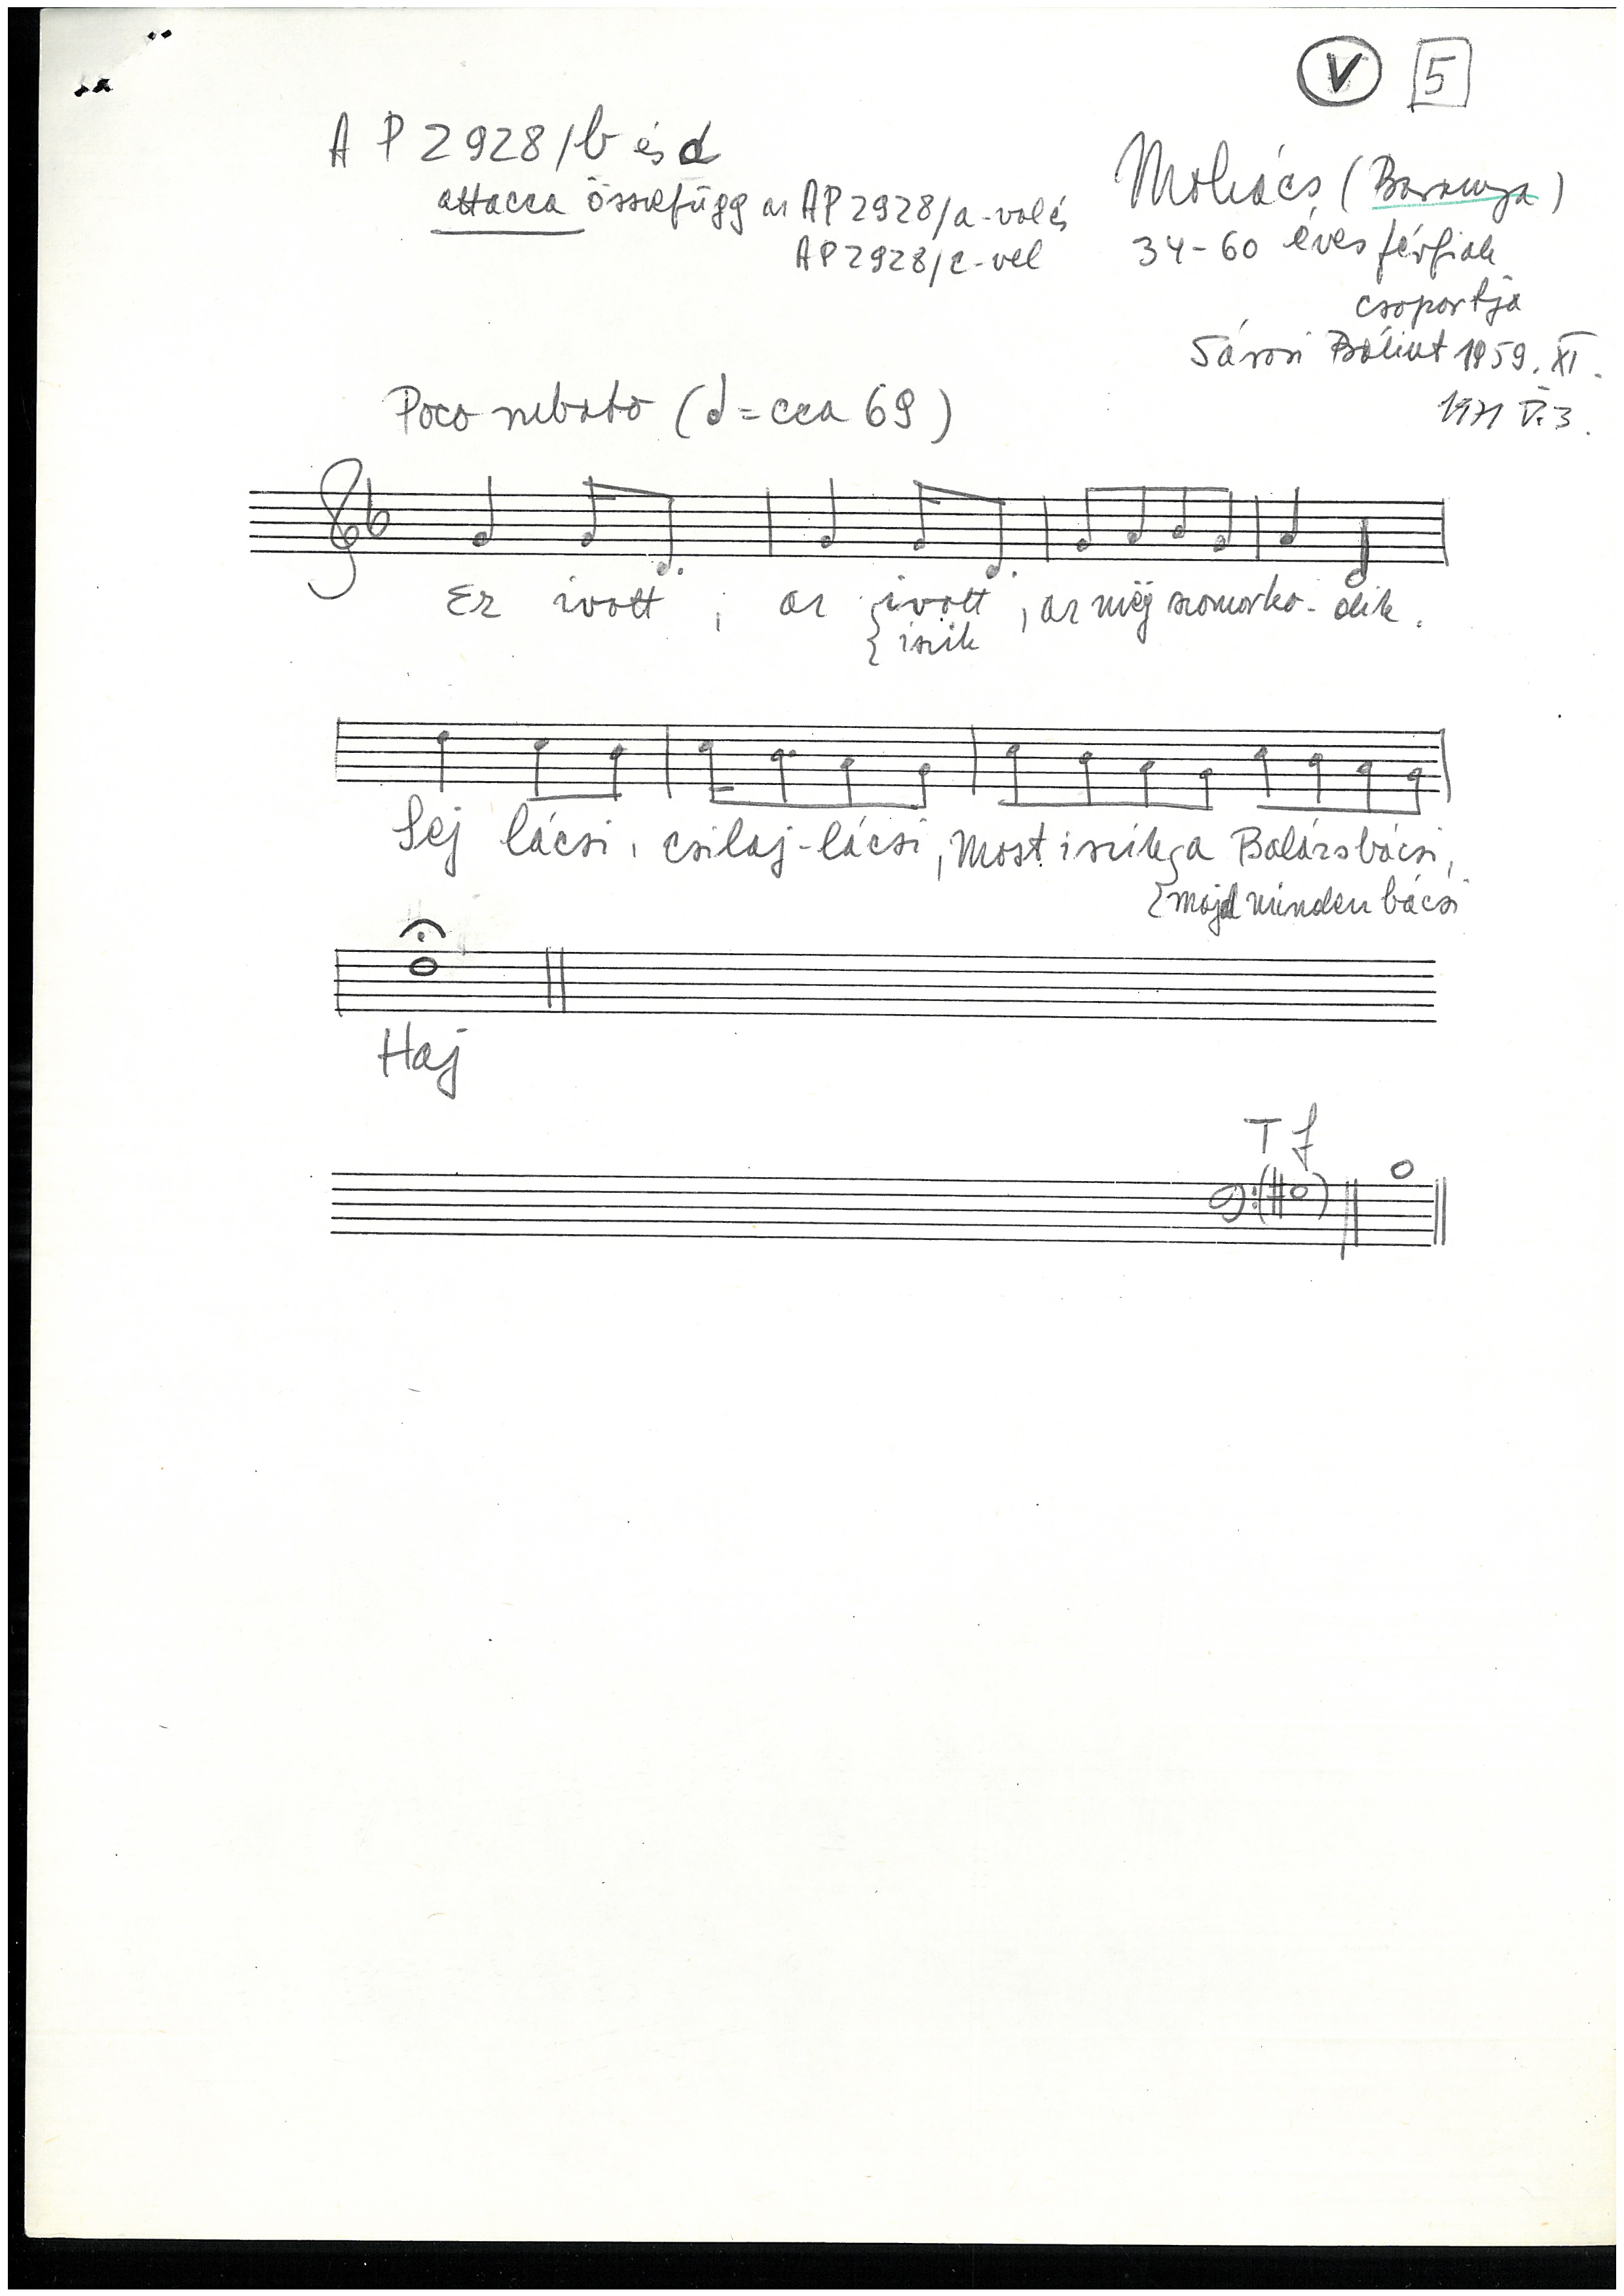 V 5
AP 2928/b és d
attacca összefügg az AP 2928/a-val és
AP 2928/c-vel
Mohács (Baranya)
34-60 éves férfiak
csoportja
Sárosi Bálint 1959. XI.
1971 V. 3.
Poco rubato (𝅗𝅥 = cca 69)
Ez ivott, az ivott, az még szomorko-dik.
iszik
Sej lácsi, csilaj-lácsi, Most iszik a Balázs bácsi,
majd minden bácsi
Haj
T f